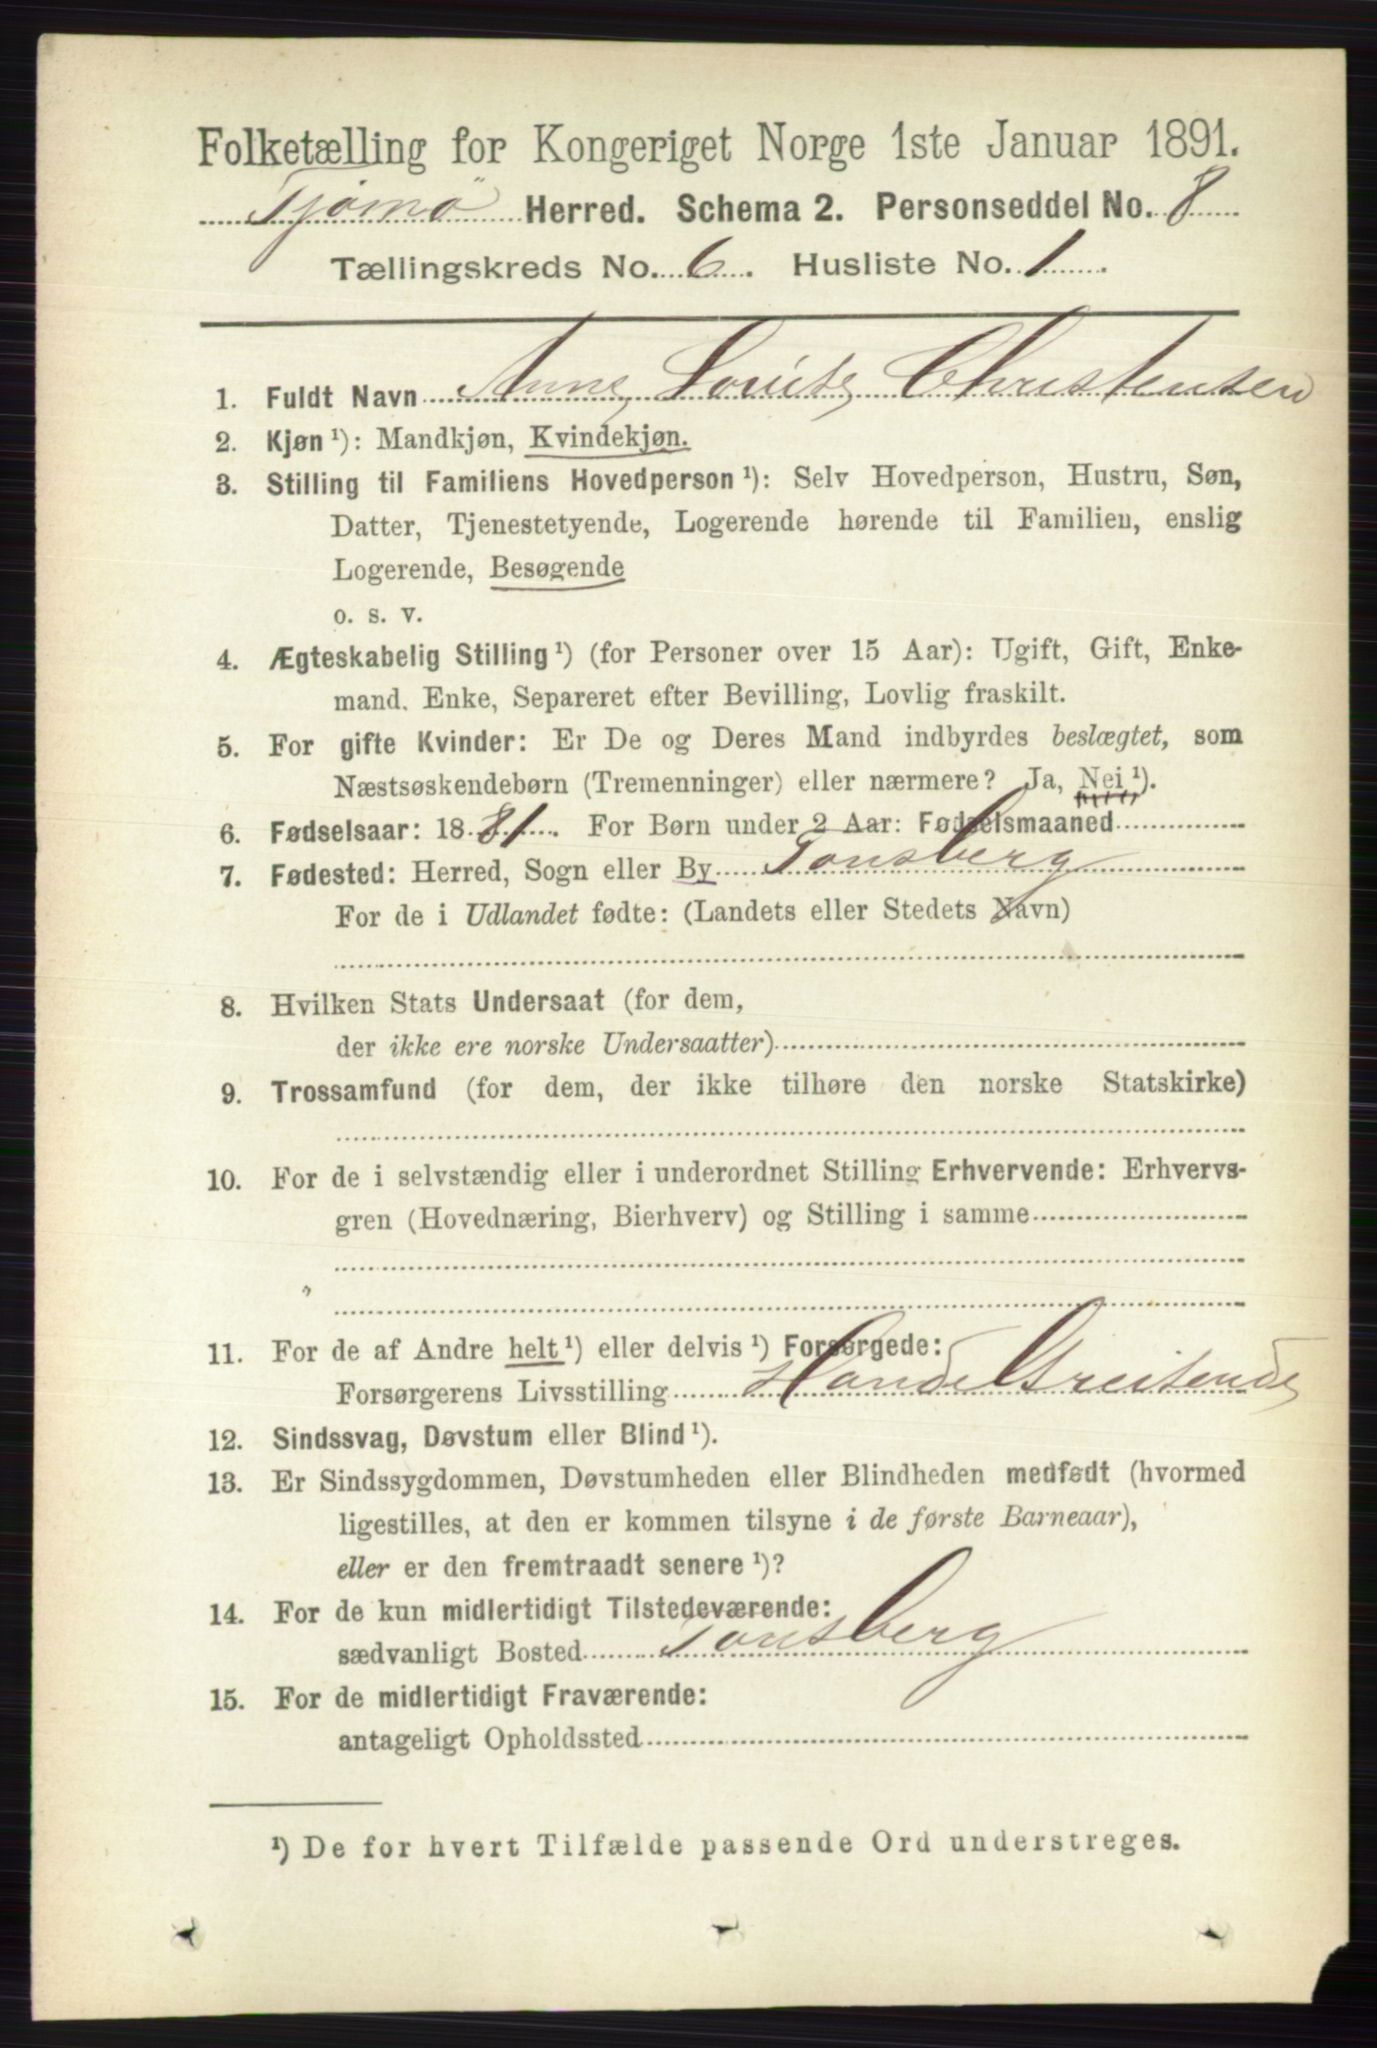 Folketælling for Kongeriget Norge 1ste Januar 1891.
Tjømø Herred. Schema 2. Personseddel No. 8
Tællingskreds No. 6. Husliste No. 1
1. Fuldt Navn Anne Lovite Christensen
2. Kjøn ¹): Mandkjøn, Kvindekjøn.
3. Stilling til Familiens Hovedperson ¹): Selv Hovedperson, Hustru, Søn,
Datter, Tjenestetyende, Logerende hørende til Familien, enslig
Logerende, Besøgende
o. s. v.
4. Ægteskabelig Stilling ¹) (for Personer over 15 Aar): Ugift, Gift, Enke-
mand, Enke, Separeret efter Bevilling, Lovlig fraskilt.
5. For gifte Kvinder: Er De og Deres Mand indbyrdes beslægtet, som
Næstsøskendebørn (Tremenninger) eller nærmere? Ja, Nei ¹).
6. Fødselsaar: 1881. For Børn under 2 Aar: Fødselsmaaned
7. Fødested: Herred, Sogn eller By Tonsberg
For de i Udlandet fødte: (Landets eller Stedets Navn)
8. Hvilken Stats Undersaat (for dem,
der ikke ere norske Undersaatter)
9. Trossamfund (for dem, der ikke tilhøre den norske Statskirke)
10. For de i selvstændig eller i underordnet Stilling Erhvervende: Erhvervs-
gren (Hovednæring, Bierhverv) og Stilling i samme
11. For de af Andre helt ¹) eller delvis ¹) Forsørgede:
Forsørgerens Livsstilling Handelsreisende
12. Sindssvag, Døvstum eller Blind ¹).
13. Er Sindssygdommen, Døvstumheden eller Blindheden medfødt (hvormed
ligestilles, at den er kommen tilsyne i de første Barneaar),
eller er den fremtraadt senere ¹)?
14. For de kun midlertidigt Tilstedeværende:
sædvanligt Bosted Tonsberg
15. For de midlertidigt Fraværende:
antageligt Opholdssted
¹) De for hvert Tilfælde passende Ord understreges.